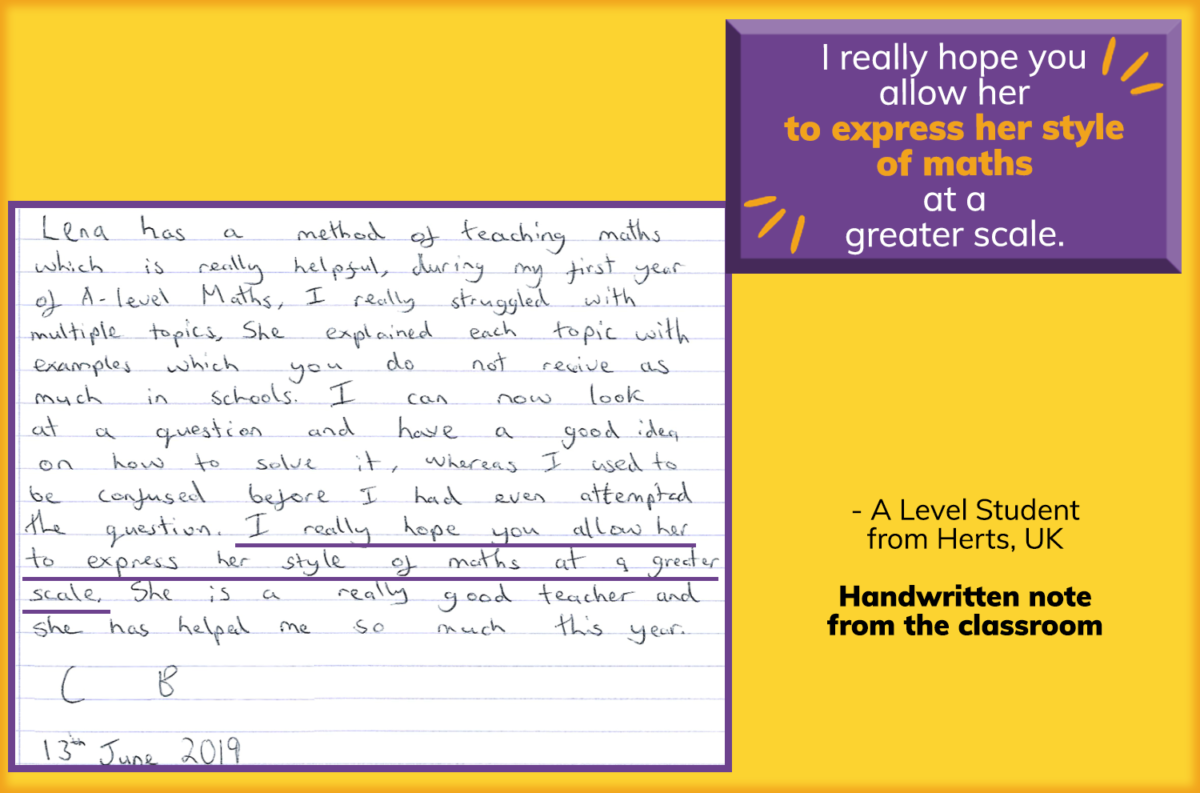 I really hope you
allow her
to express her style
of maths
at a
greater scale.
Lena has a method of teaching maths
which is really helpful, during my first year
of A-level Maths, I really struggled with
multiple topics, She explained each topic with
examples which you do not recive as
much in schools. I can now look
at a question and have a good idea
on how to solve it, whereas I used to
be confused before I had even attempted
the question. I really hope you allow her
to express her style of maths at a greater
scale. She is a really good teacher and
she has helped me so much this year.
C B
13th June 2019
- A Level Student
from Herts, UK
Handwritten note
from the classroom